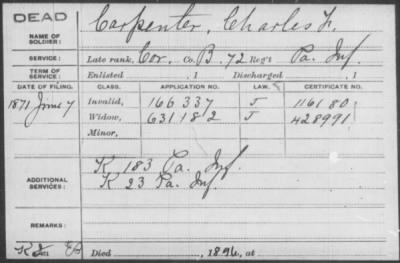 DEAD
NAME OF SOLDIER: Carpenter, Charles F.
SERVICE: Late rank, Cor., Co. B, 72 Reg't Pa. Inf.
TERM OF SERVICE: Enlisted , 1 Discharged , 1
DATE OF FILING. CLASS. APPLICATION NO. LAW. CERTIFICATE NO.
1871 June 7 Invalid, 166 337 116180
Widow, 631182 428991
Minor,
ADDITIONAL SERVICES: K 183 Pa. Inf.
K 23 Pa. Inf.
REMARKS:
Died , 1896, at